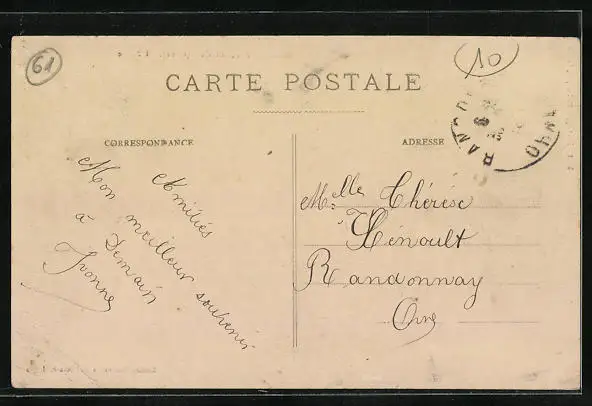 61
10
CARTE POSTALE
CORRESPONDANCE
ADRESSE
Amitiés
Mon meilleur souvenir
à Demain
Yvonne
Melle Thérèse
Hénoult
Randonnay
Orne